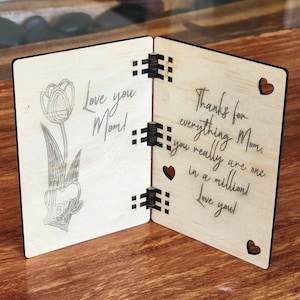 Love you
Mom!
Thanks for
everything Mom,
you really are one
in a million!
Love you!